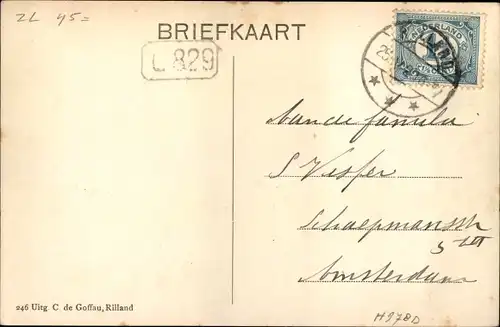 ZL 45=
BRIEFKAART
L 829
NEDERLAND
1
CENT
Aan de familie
S Visser
Schaepmansstr
5 III
Amsterdam
246 Uitg. C. de Goffau, Rilland
H278D